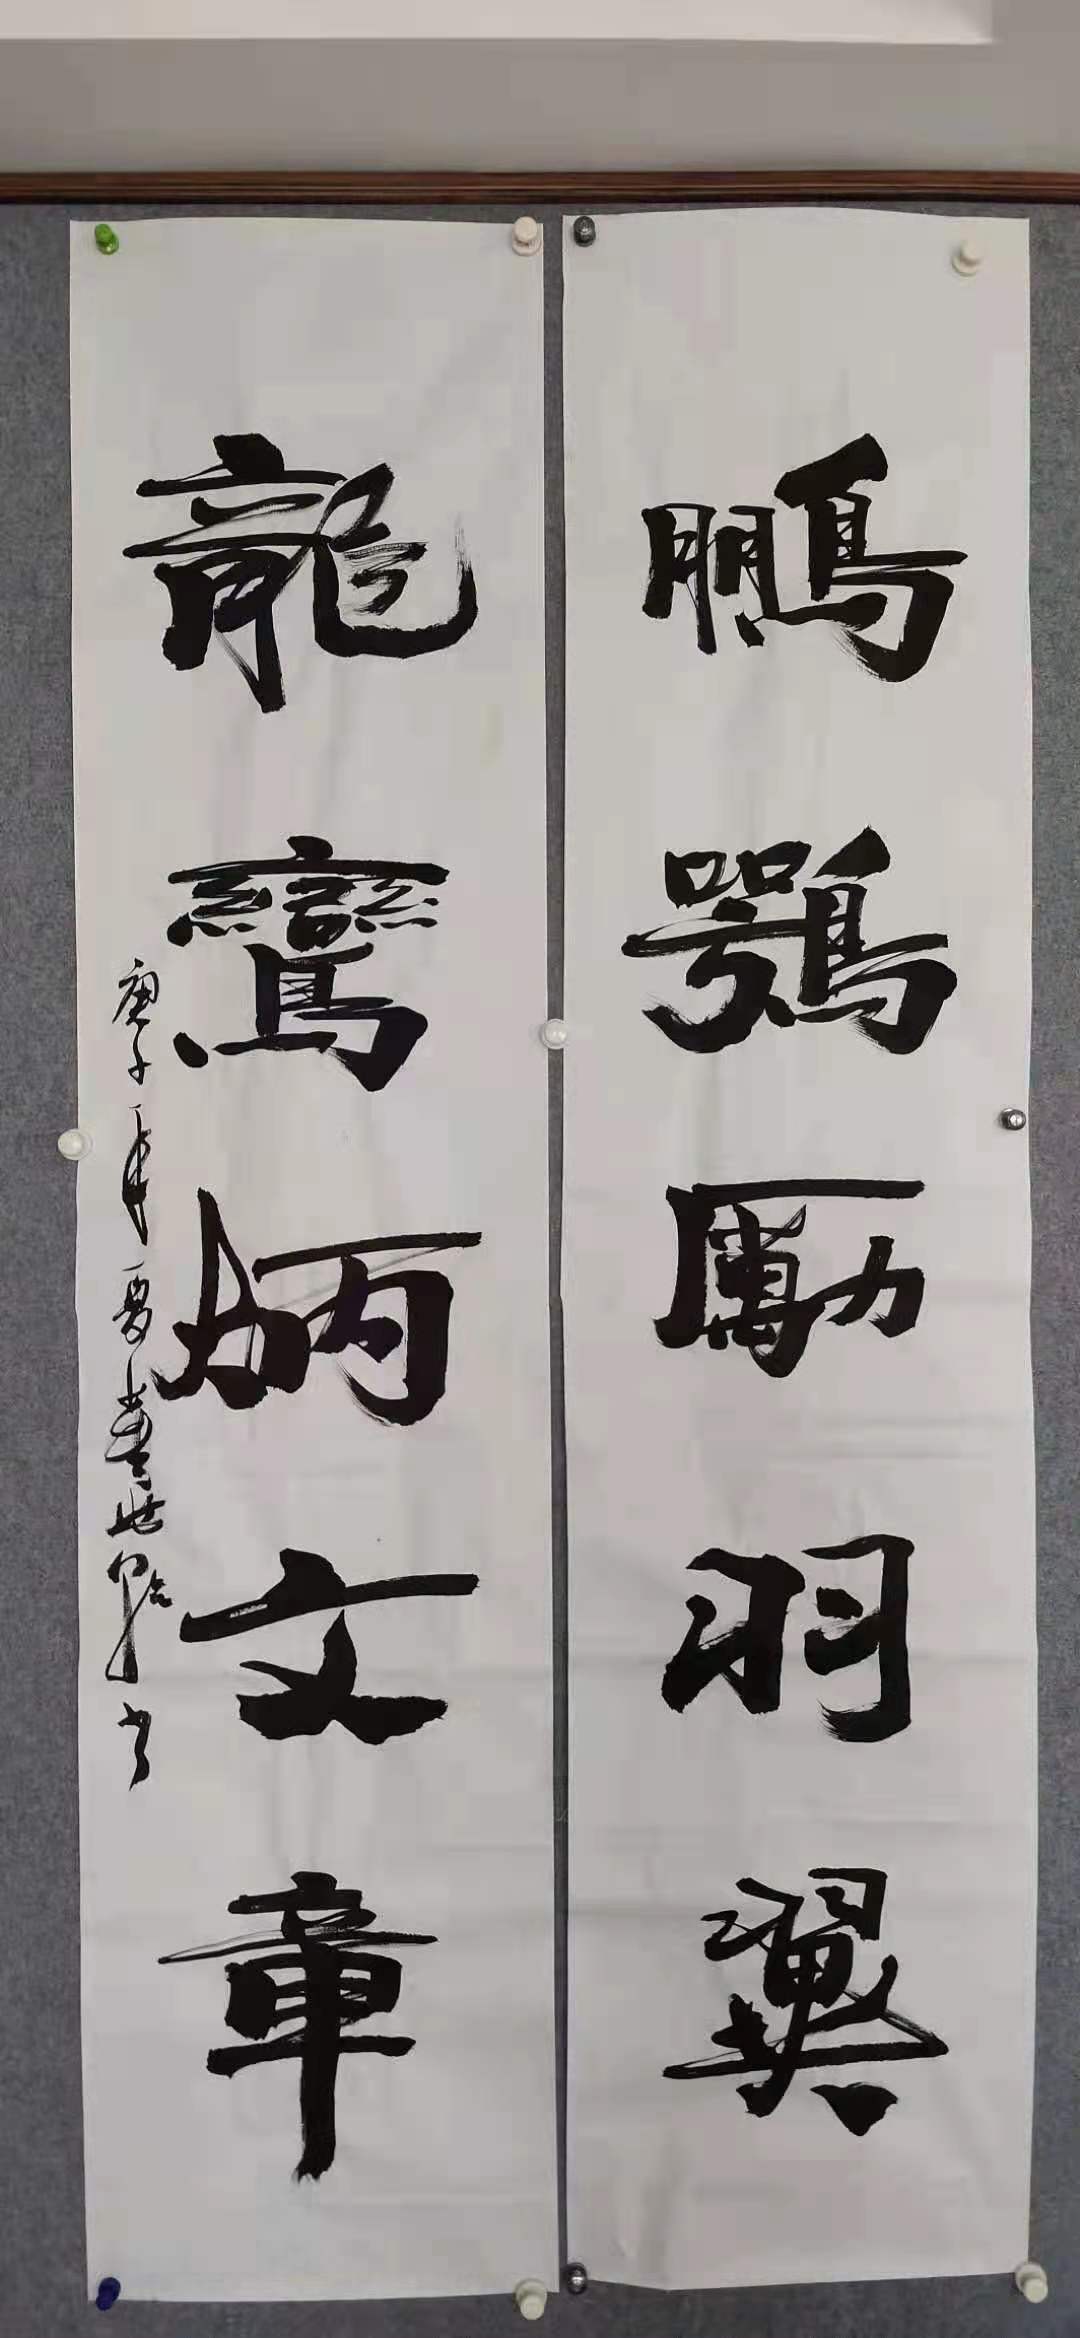 鵬鶚勵羽翼
龍鸞炳文章
庚子年夏書